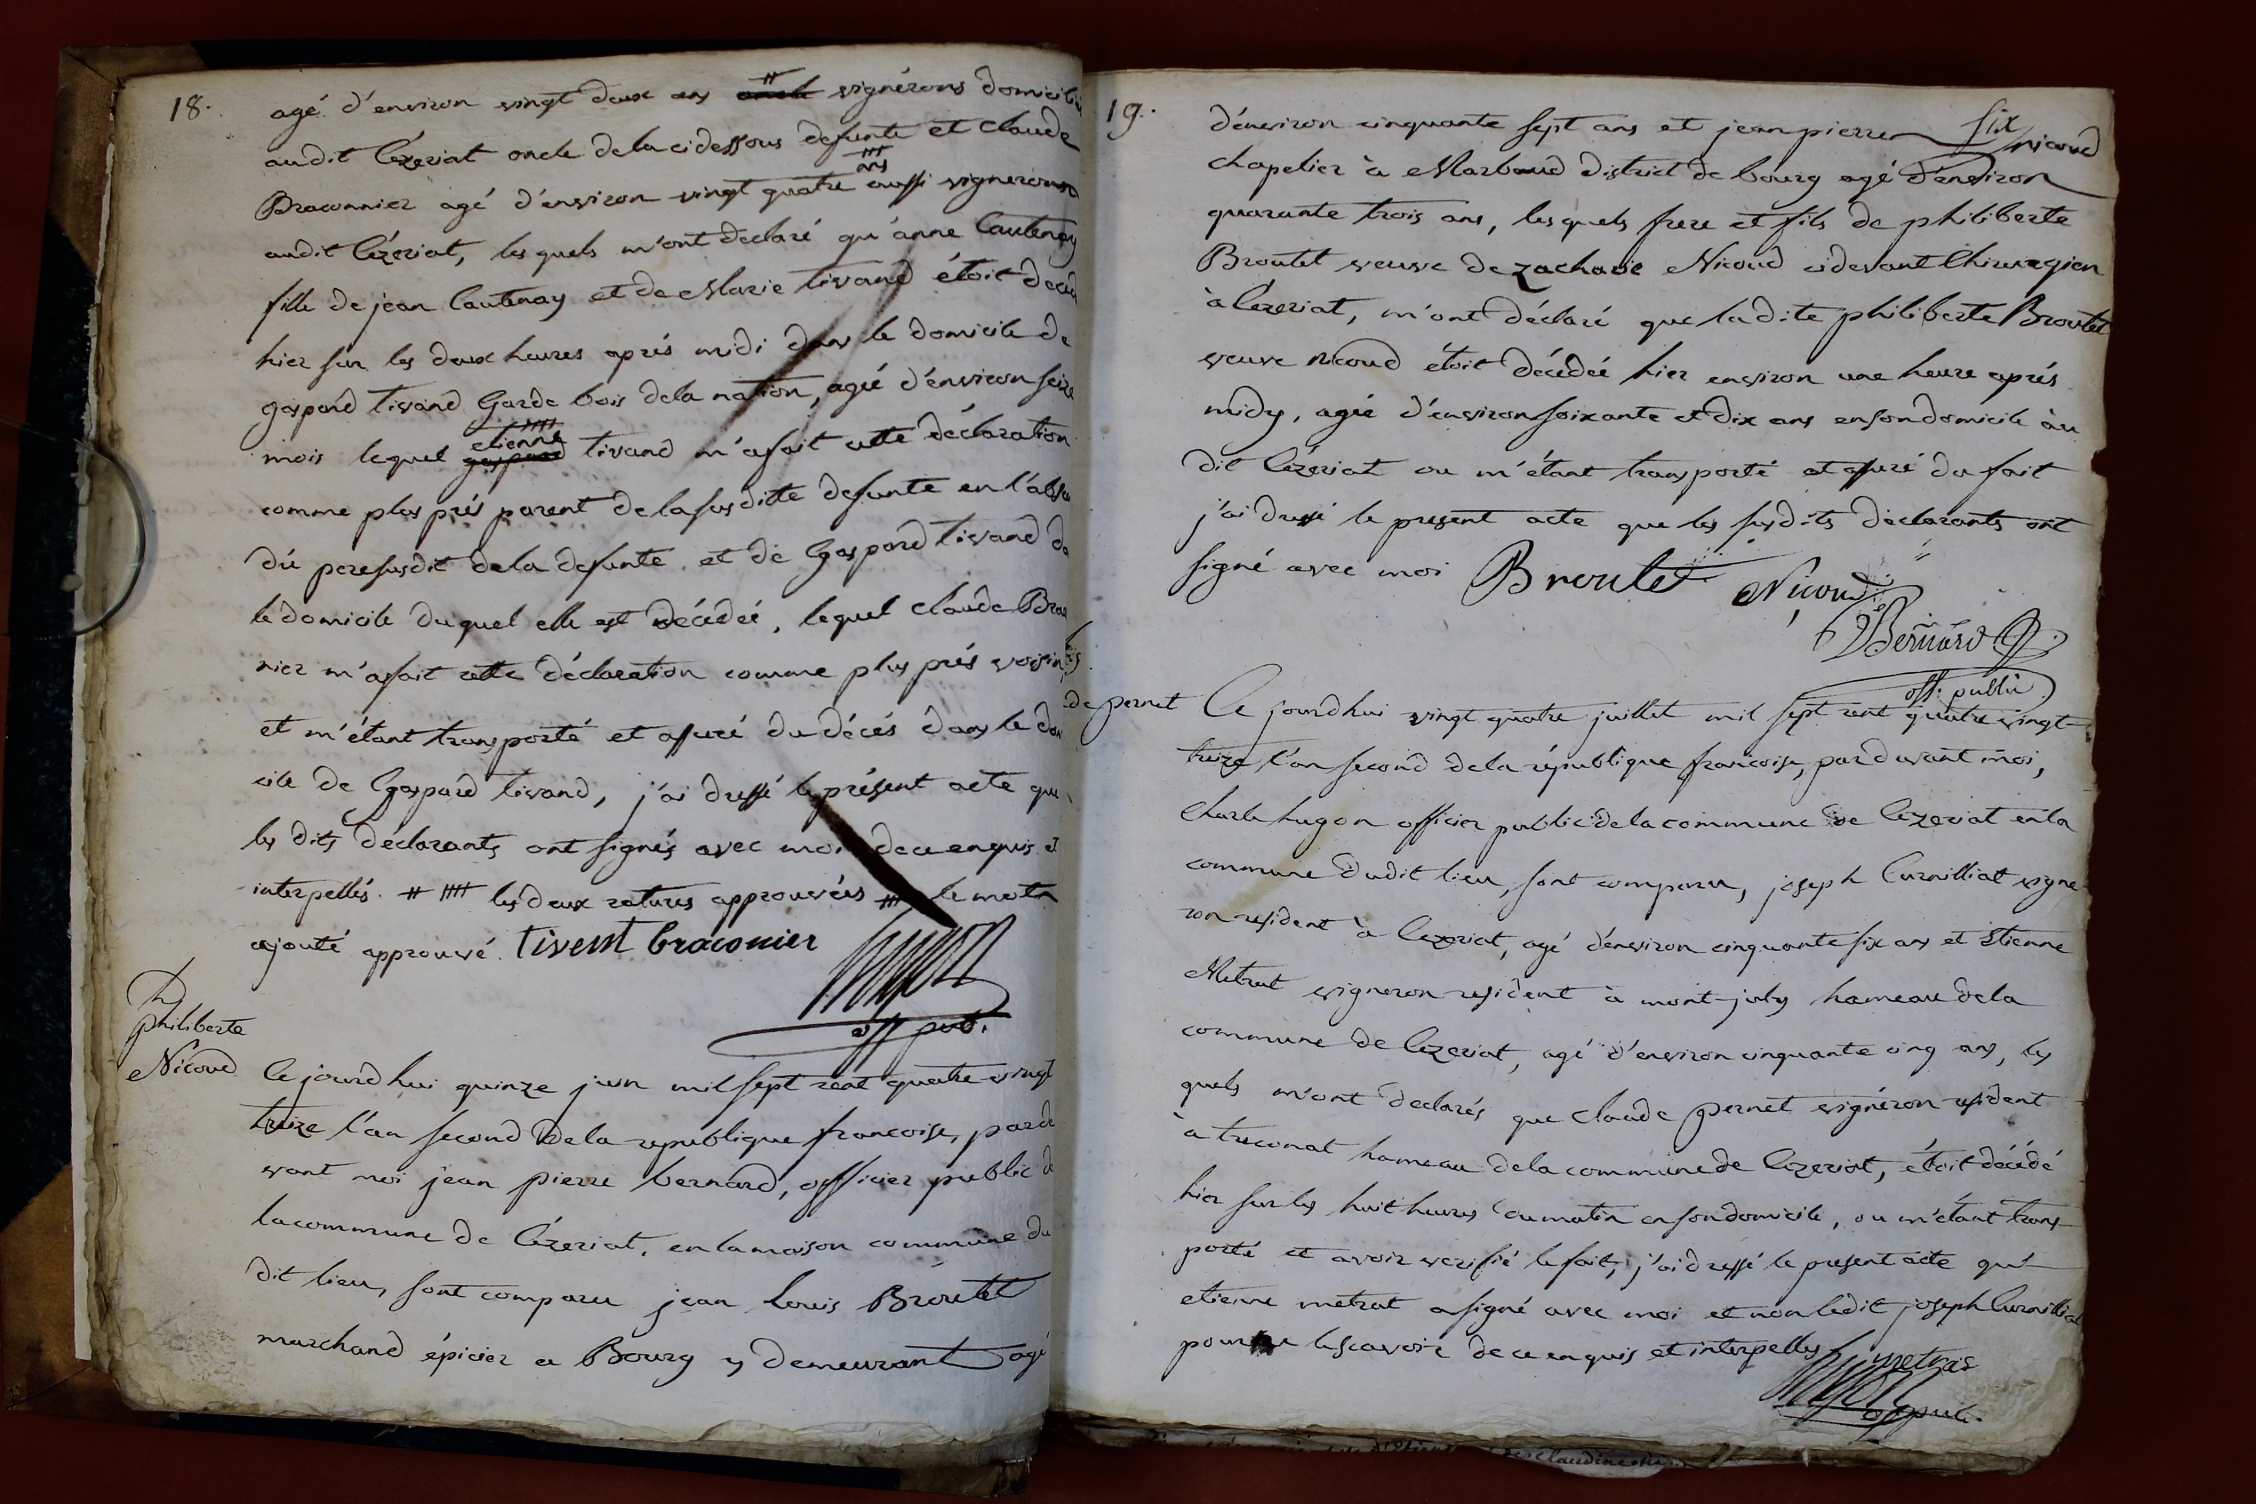 18.
agé d'environ vingt deux ans vignérons domicilié
audit Cézeriat oncle dela cidessous defunte et Claude
ans
Braconnier agé d'environ vingt quatre aussi vigneron
audit Cézériat, les quels m'ont declaré qu'anne Cautenay
fille de jean Cautenay et de Marie tivand étoit deced
hier sur les deux heures aprés midi dans le domicile de
gaspard tivand Garde bois dela nation, agée d'environ seize
etienne
mois lequel gaspard tivand m'afait cette déclaration
comme plus prés parent de lasusditte defunte en l'abse
dú peresusdit dela defunte et de Gaspard tivand da
le domicile duquel elle est décédée, lequel Claude Brac
nier m'afait cette déclaration comme plus prés voisin
et m'étant transporté et assuré du décés dans le dom
cile de Gaspard tivand, j'ai dressé le présent acte que
les dits déclarants ont signés avec moi dece enquis et
interpellés. les deux ratures approuvées le mot
ajouté approuvé. tivent braconier
hugon
off pub.
philiberte
Nicoud
Ce jourdhui quinze juin mil sept cent quatre vingt
treize l'an second dela republique francoise, parde
vant moi jean pierre bernard, officier public d
lacommune de Cézeriat, en lamaison commune du
dit lieu, sont comparu jean louis Broutet
marchand épicier a Bourg y demeurant agé
19.
six
d'environ cinquante sept ans et jeanpierre nicoud
chapelier à Marboud district de bourg agé d'environ
quarante trois ans, lesquels frere et fils de philiberte
Broutet veuve de zacharie Nicoud cidevant Chirurgien
à Cezeriat, m'ont déclaré que ladite philiberte Broutet
veuve nicoud étoit décédée hier environ une heure aprés
midy, agée d'environ soixante et dix ans ensondomicile au
dit Cézériat ou m'étant transporté et assuré du fait
j'ai dressé le present acte que les susdits déclarants ont
signé avec moi Broutet Nicoud
Bernard
off. public
de pernet
Ce jourdhui vingt quatre juillet mil sept cent quatre vingt
treize l'an second dela république francoise, pardevant moi,
Charle hugon officier public dela commune de Cezeriat en la
commune dudit lieu, sont comparu, joseph Curnilliat vigne
ron resident à Cezeriat, agé d'environ cinquante six ans et Etienne
Metrat vigneron resident à mont-july hameau dela
commune de Cezeriat, agé d'environ cinquante cinq ans, les
quels m'ont declarés que Claude pernet vignéron resident
à treconat hameau dela commune de Cezeriat, étoit décédé
hier sur les huit heures du matin en sondomicile, ou m'étant trans
porté et avoir verifié le fait, j'ai dressé le present acte qu'
etienne metrat asigné avec moi et non ledit joseph Curnilliat
pour ne le scavoir de ce enquis et interpellés metras
hugon
off pub.